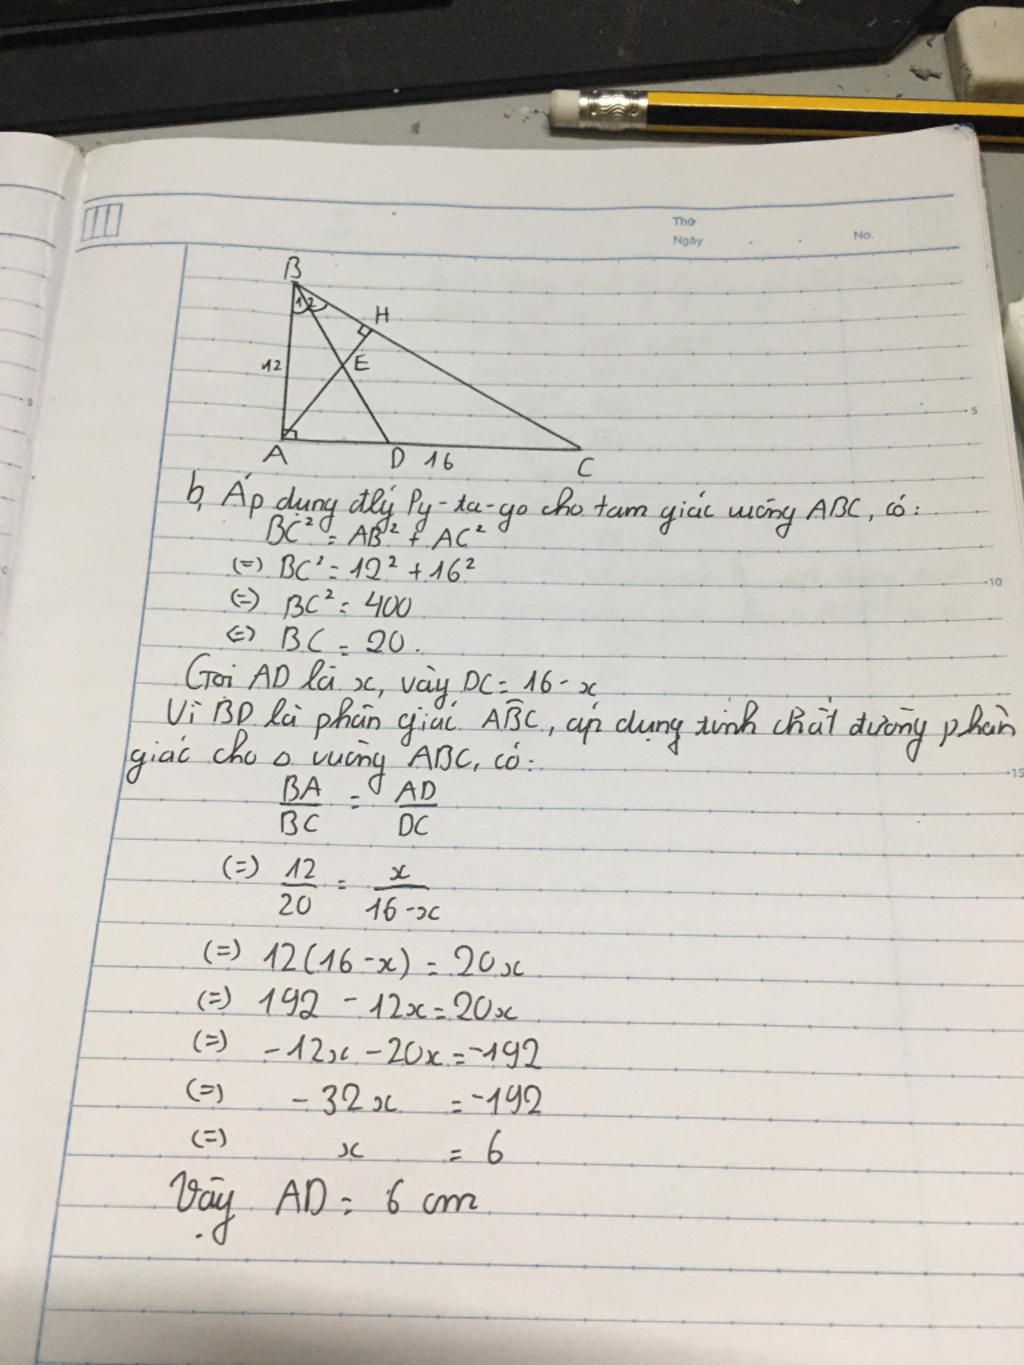 Thứ
Ngày
No.
B
1 2
H
12
E
A
D 16
C
5
b, Áp dụng đlý Py-ta-go cho tam giác vuông ABC, có:
BC² = AB² + AC²
(=) BC² = 12² + 16²
10
(=) BC² = 400
(=) BC = 20.
Gọi AD là x, vậy DC = 16 - x
Vì BD là phân giác ABC, áp dụng tính chất đường phân
giác cho △ vuông ABC, có:
15
BA/BC = AD/DC
(=) 12/20 = x/16-x
(=) 12(16-x) = 20x
(=) 192 - 12x = 20x
(=) -12x - 20x = -192
(=) -32x = -192
(=) x = 6
Vậy AD = 6 cm